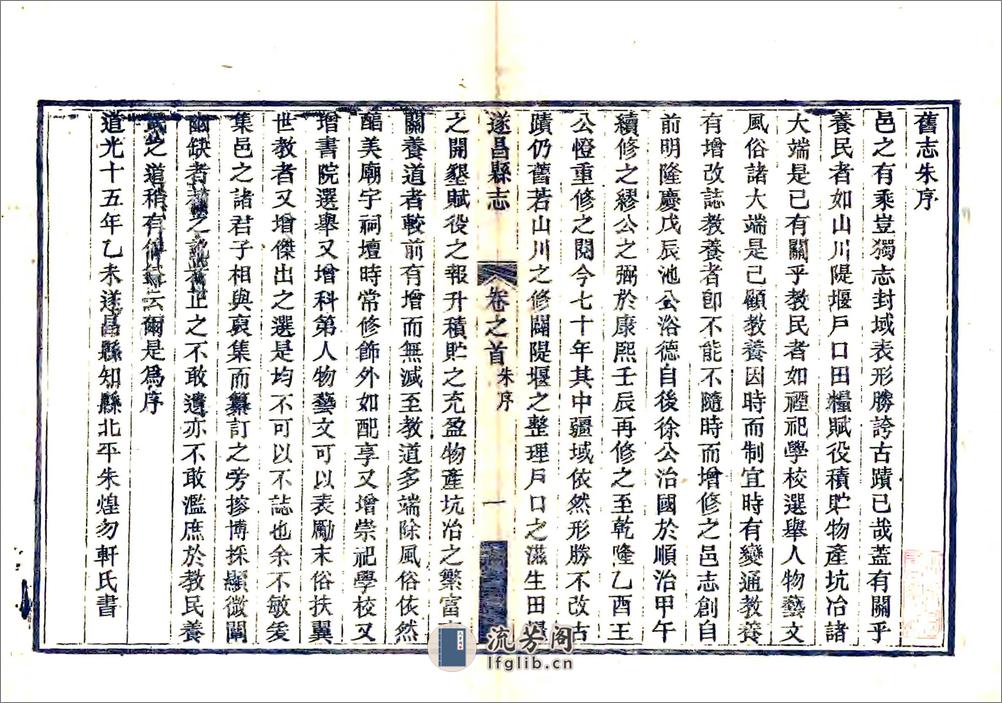 舊志朱序
邑之有乘豈獨志封域表形勝誇古蹟已哉蓋有關乎
養民者如山川隄堰戶口田糧賦役積貯物產坑冶諸
大端是已有關乎教民者如禋祀學校選舉人物藝文
風俗諸大端是已顧教養因時而制宜時有變通教養
有增改誌教養者卽不能不隨時而增修之邑志創自
前明隆慶戊辰池公浴德自後徐公治國於順治甲午
續修之繆公之弼於康熙壬辰再修之至乾隆乙酉王
公憕重修之閱今七十年其中疆域依然形勝不改古
蹟仍舊若山川之修闢隄堰之整理戶口之滋生田
遂昌縣志 卷之首 朱序 一
之開墾賦役之報升積貯之充盈物產坑冶之繁富
關養道者較前有增而無減至教道多端除風俗依然
醕美廟宇祠壇時常修飾外如配享又增崇祀學校又
增書院選舉又增科第人物藝文可以表勵末俗扶翼
世教者又增傑出之選是均不可以不誌也余不敏爰
集邑之諸君子相與裒集而纂訂之旁搜博採顯微闡
幽缺者之正之不敢遺亦不敢濫庶於教民養
之道稍有云爾是為序
道光十五年乙未遂昌縣知縣北平朱煌勿軒氏書
流芳阁
lfglib.cn